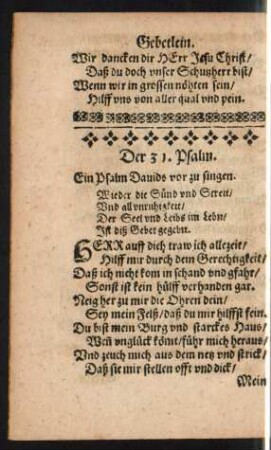 Gebetlein.
Wir dancken dir HErr Jesu Christ/
Daß du doch vnser Schutzherr bist/
Wenn wir in grossen nöhten sein/
Hilff vns von aller qual vnd pein.
Der 31. Psalm.
Ein Psalm Dauids vor zu singen.
Wieder die Sünd vnd Streit/
Vnd all vnruhigkeit/
Der Seel vnd Leibs im Lebn/
Ist diß Gebet gegebn.
HERR auff dich traw ich allezeit/
Hilff mir durch dein Gerechtigkeit/
Daß ich nicht kom in schand vnd gfahr/
Sonst ist kein hülff verhanden gar.
Neig her zu mir die Ohren dein/
Sey mein Felß/ daß du mir hilffst fein.
Du bist mein Burg vnd starckes Haus/
Weñ vnglück kömt/ führ mich heraus/
Vnd zeuch mich aus dem netz vnd strick/
Daß sie mir stellen offt vnd dick/
Mein